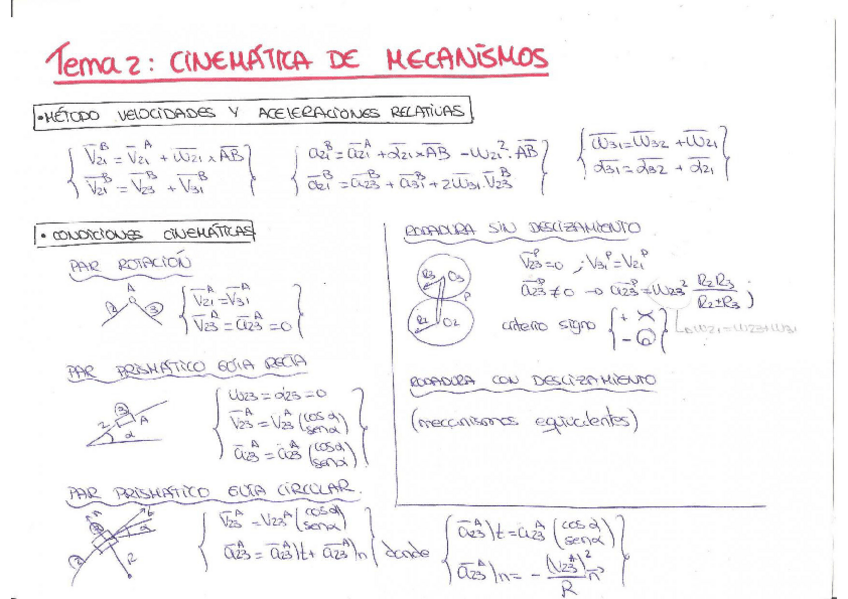 Tema 2: CINEMÁTICA DE MECANISMOS
•MÉTODO VELOCIDADES Y ACELERACIONES RELATIVAS
V̄₂₁ᴮ = V̄₂₁ᴬ + ω̄₂₁ x A̅B̅
V̄₂₁ᴮ = V̄₂₃ᴮ + V̄₃₁ᴮ
ā₂₁ᴮ = ā₂₁ᴬ + ᾱ₂₁ x A̅B̅ - ω₂₁² · A̅B̅
ā₂₁ᴮ = ā₂₃ᴮ + ā₃₁ᴮ + 2ω̄₃₁ · V̄₂₃ᴮ
ω̄₃₁ = ω̄₃₂ + ω̄₂₁
ᾱ₃₁ = ᾱ₃₂ + ᾱ₂₁
• CONDICIONES CINEMÁTICAS
PAR ROTACIÓN
A
2 3
V̄₂₁ᴬ = V̄₃₁ᴬ
V̄₂₃ᴬ = ā₂₃ᴬ = 0
PAR PRISMÁTICO GUÍA RECTA
3
2 A
α
ω₂₃ = α₂₃ = 0
V̄₂₃ᴬ = V₂₃ᴬ (cos α / sen α)
ā₂₃ᴬ = a₂₃ᴬ (cos α / sen α)
PAR PRISMÁTICO GUÍA CIRCULAR
A t
α
R
2
V̄₂₃ᴬ = V₂₃ᴬ (cos α / sen α)
ā₂₃ᴬ = ā₂₃ᴬ)t + ā₂₃ᴬ)n
donde
ā₂₃ᴬ)t = a₂₃ᴬ (cos α / sen α)
ā₂₃ᴬ)n = - (V₂₃ᴬ)² / R n̄
RODADURA SIN DESLIZAMIENTO
R3 O3
P
R2 O2
V̄₂₃ᴾ = 0 ; V̄₃₁ᴾ = V̄₂₁ᴾ
ā₂₃ᴾ ≠ 0 → ā₂₃ᴾ = ω₂₃² R₂R₃ / R₂±R₃ ;
criterio signo
+
-
ω₂₁ = ω₂₃ + ω₃₁
RODADURA CON DESLIZAMIENTO
(mecanismos equivalentes)